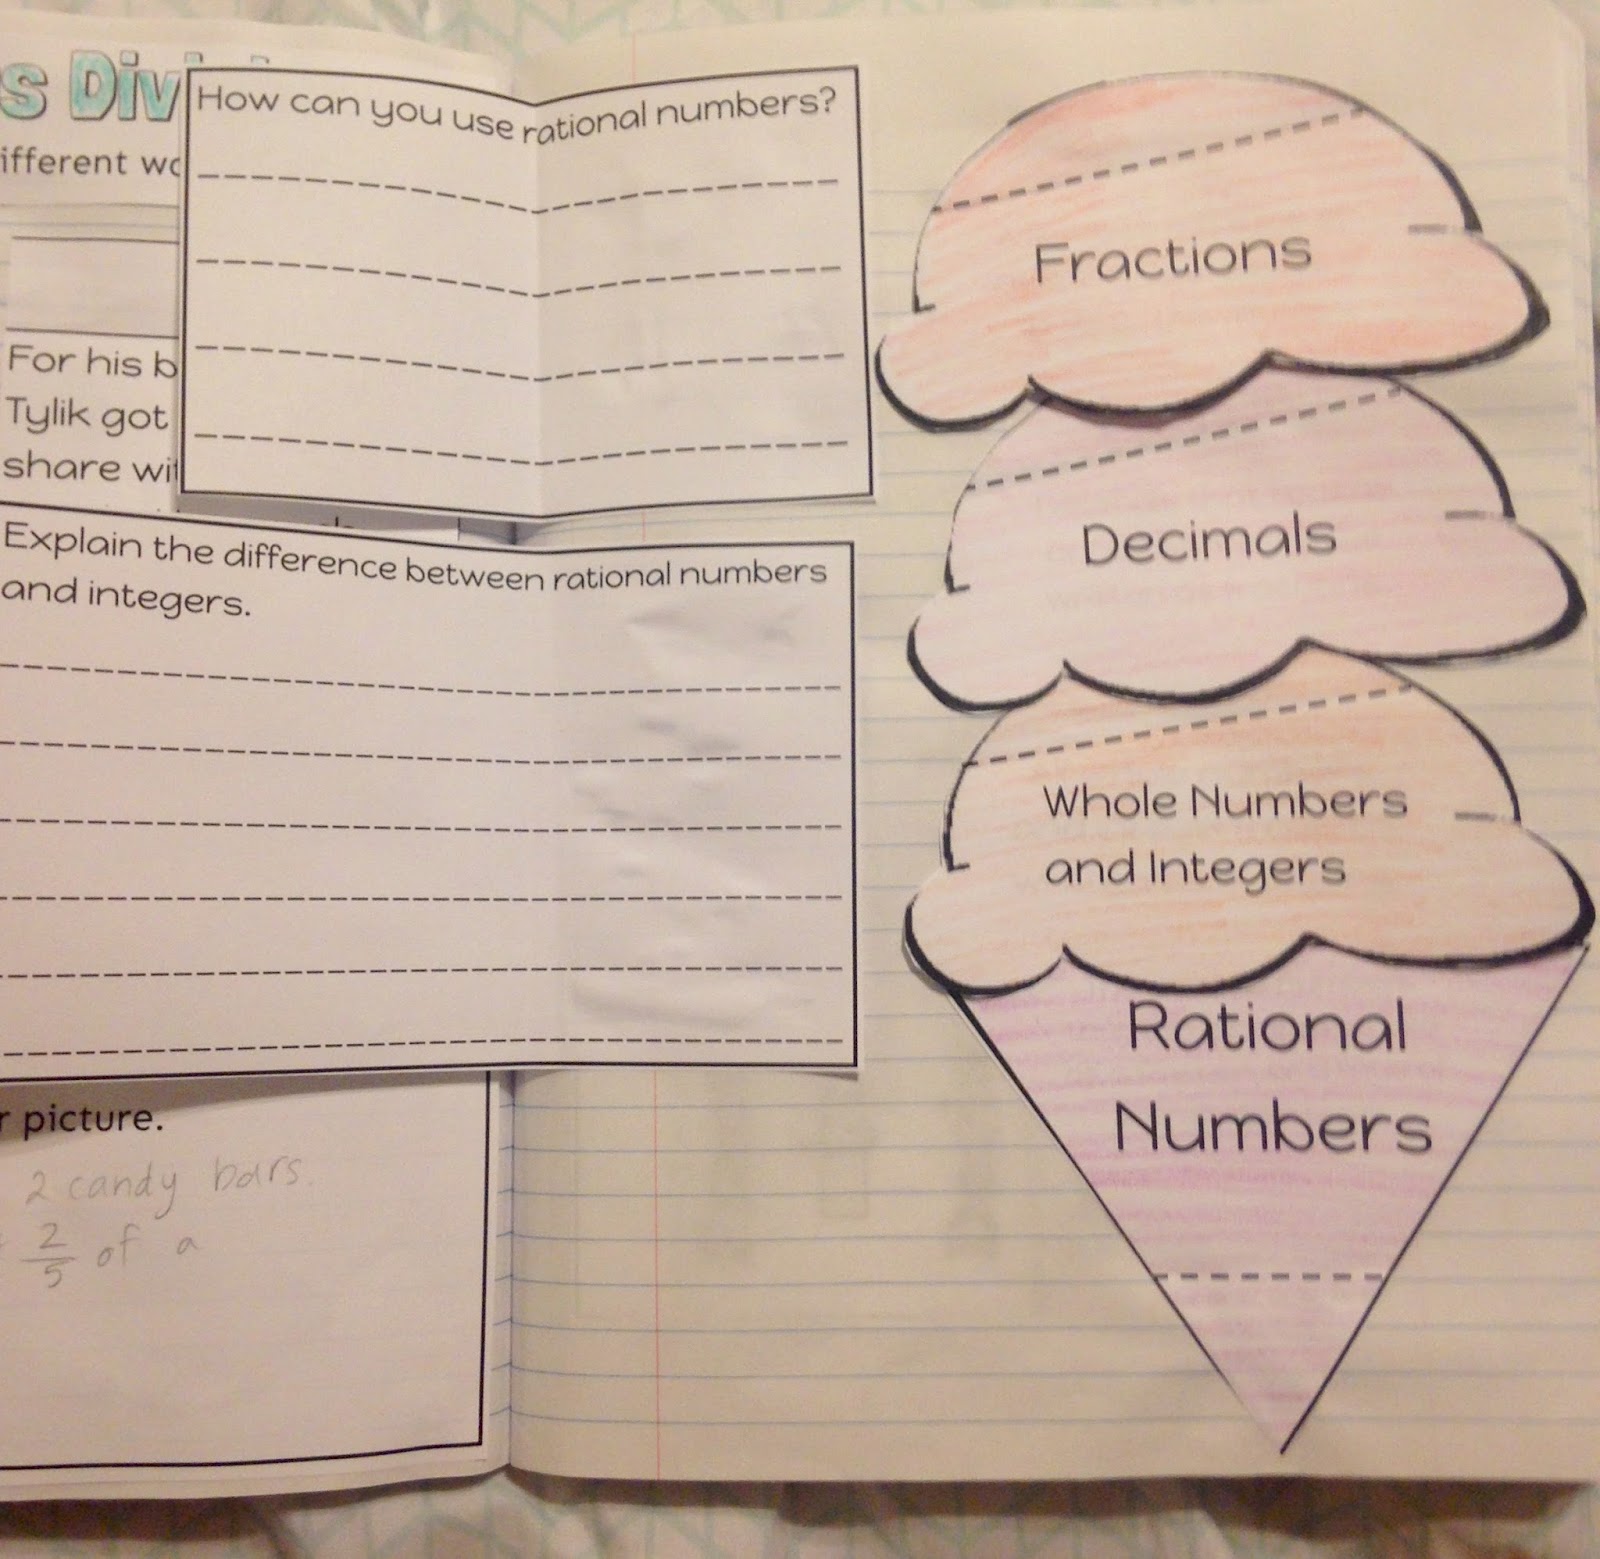 How can you use rational numbers?
For his
Tylik got
share
Explain the difference between rational numbers
and integers.
picture.
2 candy bars.
2/5 of a
Fractions
Decimals
Whole Numbers
and Integers
Rational
Numbers